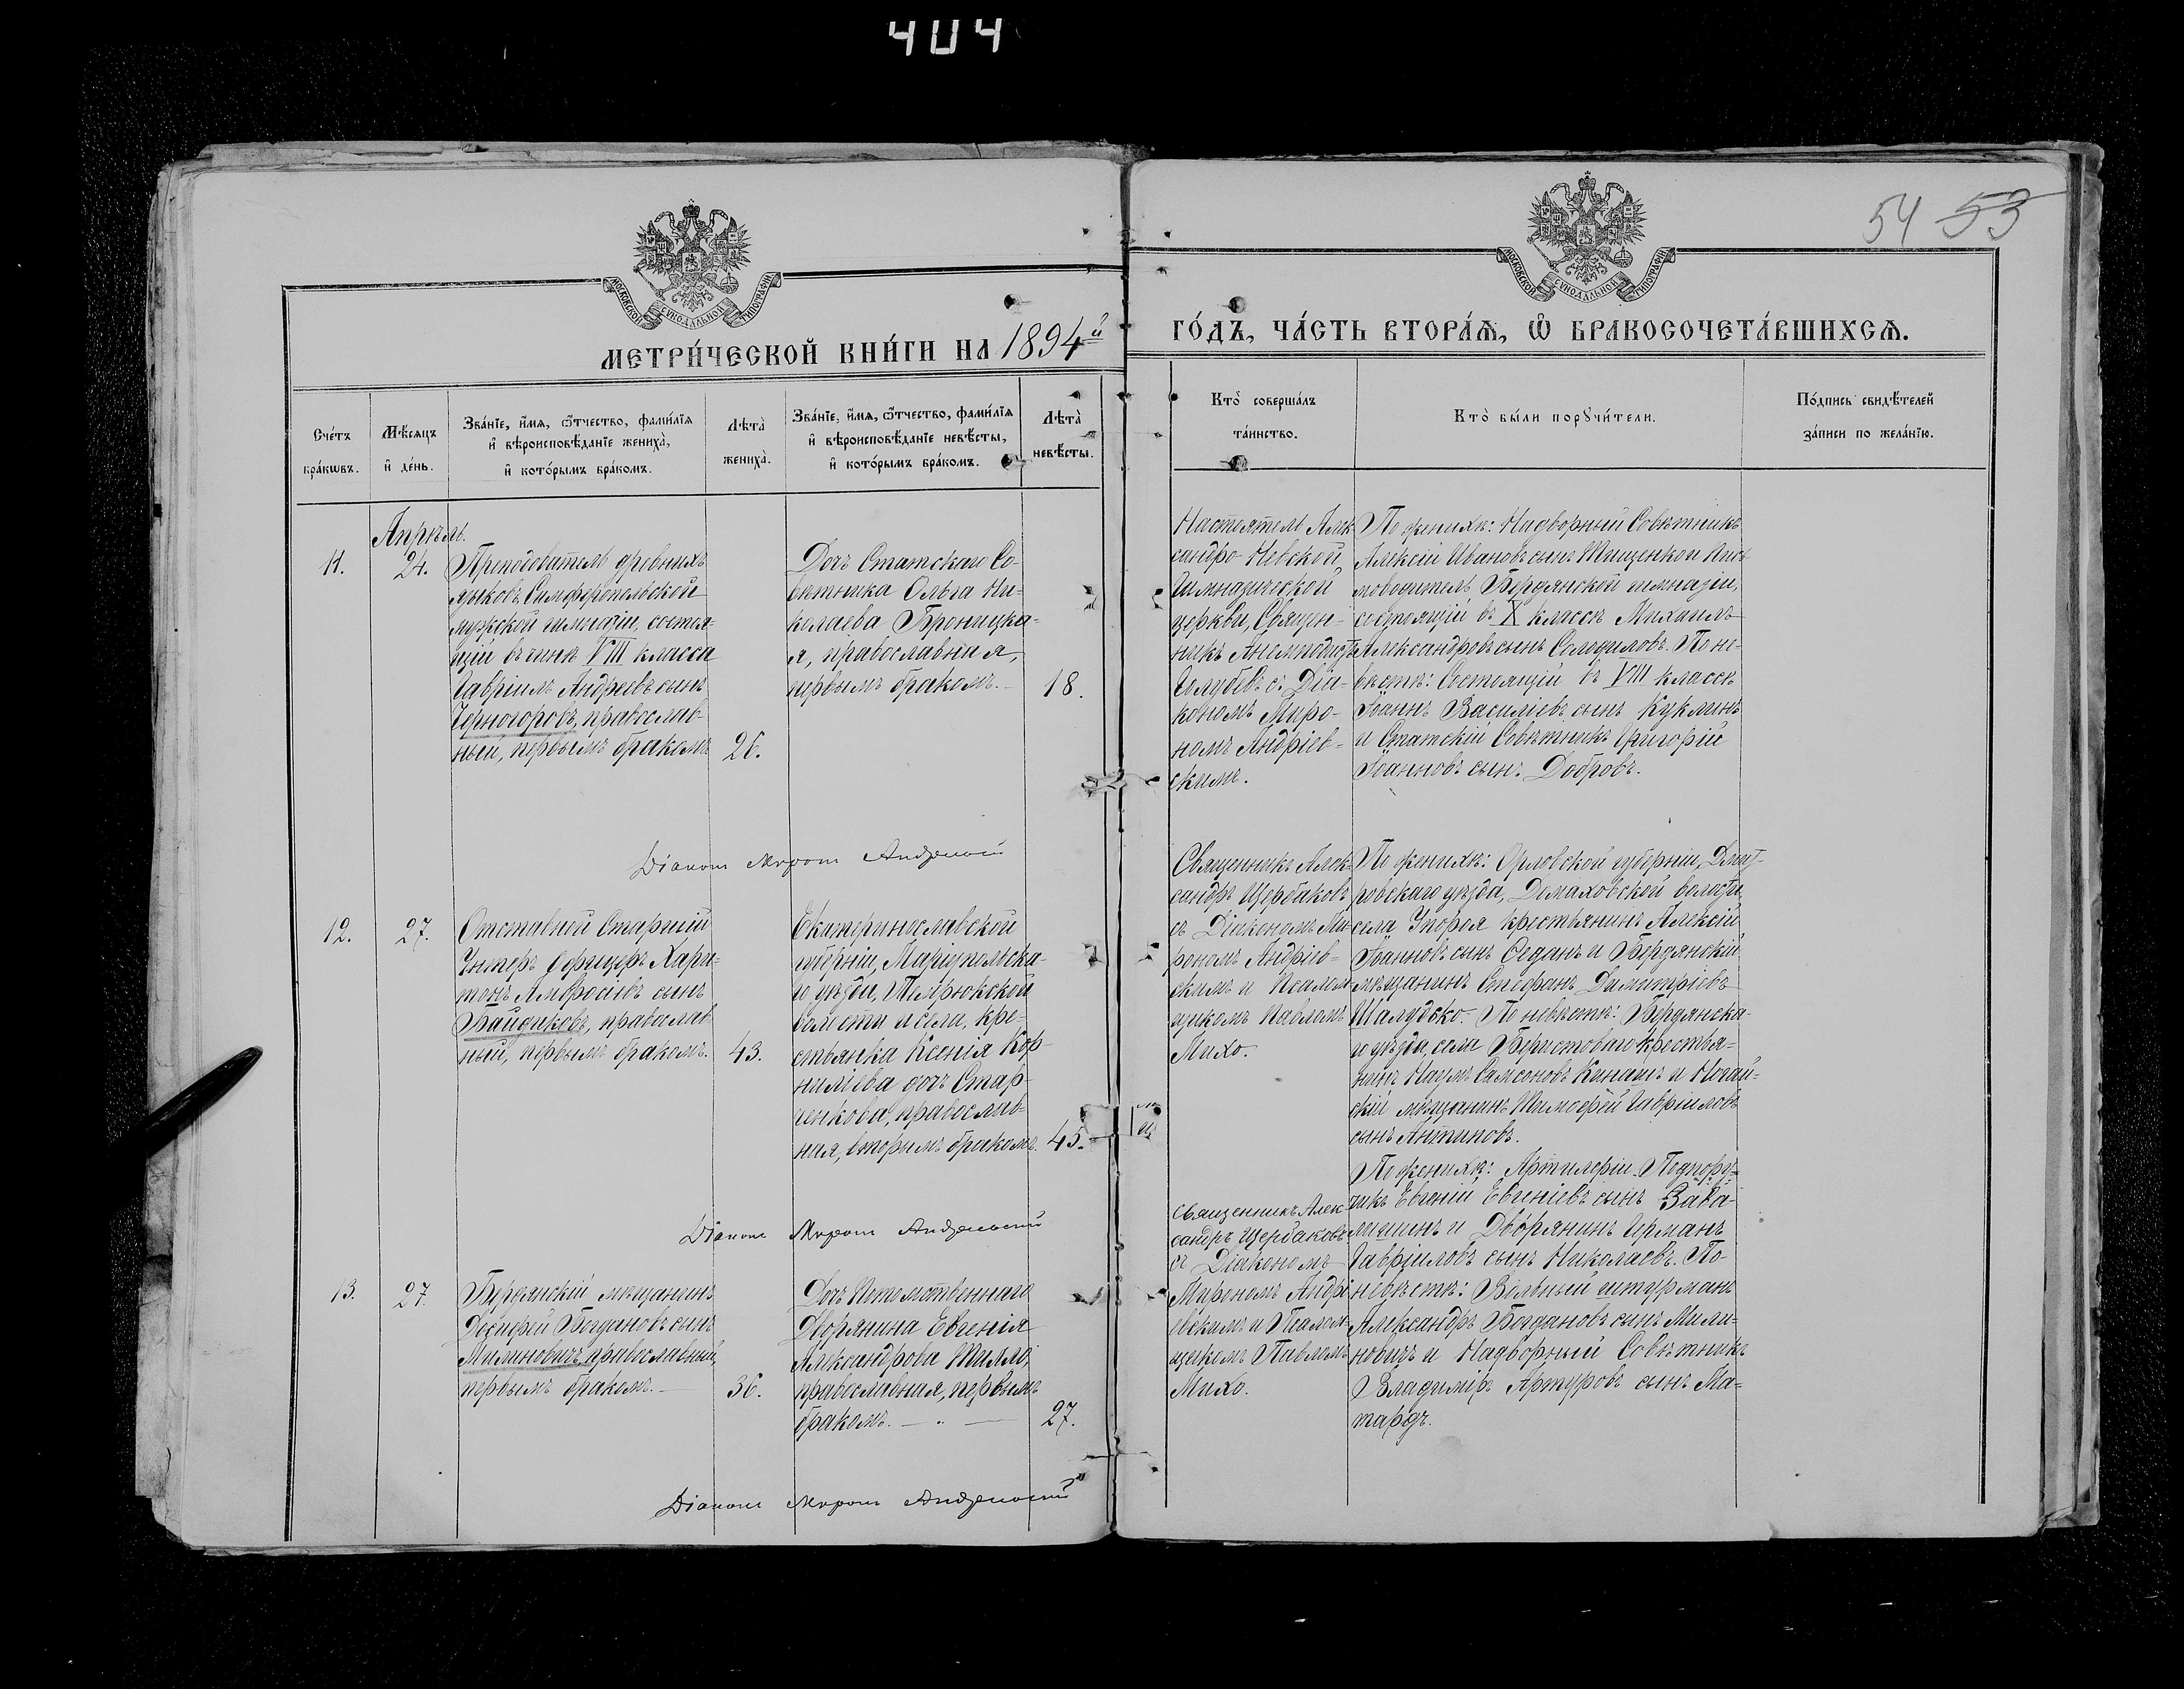 404
54 53
МОСКОВСКОЙ СУНОДАЛЬНОЙ ТИПОГРАФІИ
МОСКОВСКОЙ СУНОДАЛЬНОЙ ТИПОГРАФІИ
МЕТРИ́ЧЕСКОЙ КНИ́ГИ НА 1894й
ГО́ДЪ, ЧА́СТЬ ВТОРА́Ѧ, Ѽ БРАКОСОЧЕТА́ВШИХСѦ.
Сче́тъ
бра́кѡвъ.
Мѣ́сяцъ
и҆ де́нь.
Зва́нїе, и҆́мѧ, ѻ҆́тчество, фами́лїѧ
и҆ вѣроисповѣ́данїе жениха̀,
и҆ кото́рымъ бра́комъ.
Лѣта̀
жениха̀.
Зва́нїе, и҆́мѧ, ѻ҆́тчество, фами́лїѧ
и҆ вѣроисповѣ́данїе невѣ́сты,
и҆ кото́рымъ бра́комъ.
Лѣта̀
невѣ́сты.
Кто̀ соверша́лъ
та́инство.
Кто̀ бы́ли порꙋчи́тели.
По́дпись свидѣ́телей
за́писи по жела́нїю.
Апрѣль.
11.
24.
Преподаватель древнихъ
языковъ Симферопольской
мужской гимназіи, состоя-
щій въ чинѣ VIII класса
Гавріилъ Андреевъ сынъ
Черногоровъ, православ-
ный, первымъ бракомъ
26.
Дочь Статскаго Со-
вѣтника Ольга Ни-
колаева Броницка-
я, православная,
первымъ бракомъ.
18.
Настоятель Алек-
сандро-Невской
Гимназической
церкви, Священ-
никъ Анемподистъ
Голубевъ съ Діа-
кономъ Миро-
номъ Андріев-
скимъ.
По женихѣ: Надворный Совѣтникъ
Алексій Ивановъ сынъ Тищенко и Пись-
моводитель Бердянской гимназіи,
состоящій въ X классѣ Михаилъ
Александровъ сынъ Солодиловъ. По не-
вѣстѣ: Состоящій въ VIII классѣ
Іоаннъ Василіевъ сынъ Куклинъ
и Статскій Совѣтникъ Григорій
Іоанновъ сынъ Добровъ.
Діаконъ Миронъ Андрiевскій
12.
27.
Отставной Старшій
Унтеръ Офицеръ Хари-
тонъ Амвросіевъ сынъ
Байдиковъ, православ-
ный, первымъ бракомъ.
43.
Екатеринославской
губерніи, Маріупольска-
го уѣзда, Темрюкской
волости и села, кре-
стьянка Ксенія Кор-
ниліева дочь Стар-
ченкова, православ-
ная, вторымъ бракомъ.
45.
Священникъ Алек-
сандръ Щербаковъ
съ Діакономъ Ми-
рономъ Андріев-
скимъ и Псалом-
щикомъ Павломъ
Михо.
По женихѣ: Орловской губерніи, Дмит-
ровскаго уѣзда, Домаховской волости,
села Упороя крестьянинъ Алексій
Іоанновъ сынъ Седанъ и Бердянскій
мѣщанинъ Стефанъ Димитріевъ
Шалудько. По невѣстѣ: Бердянска-
го уѣзда, села Берестоваго крестья-
нинъ Наумъ Самсоновъ Кинашъ и Ногай-
скій мѣщанинъ Тимофей Гавриловъ
сынъ Антиповъ.
Діаконъ Миронъ Андрiевскій
13.
27.
Бердянскій мѣщанинъ
Досифей Богдановъ сынъ
Милиновичъ, православный,
первымъ бракомъ.
36.
Дочь Потомственнаго
Дворянина Евгенія
Александрова Тилло,
православная, первымъ
бракомъ.
27.
Священникъ Алек-
сандръ Щербаковъ
съ Діакономъ
Мирономъ Андрі-
евскимъ и Псалом-
щикомъ Павломъ
Михо.
По женихѣ: Артилеріи Подпору-
чикъ Евгеній Евгеніевъ сынъ Зава-
лишинъ и Дворянинъ Ирманъ
Гавріиловъ сынъ Николаевъ. По
невѣстѣ: Вольный штурманъ
Александръ Богдановъ сынъ Мили-
новичъ и Надворный Совѣтникъ
Владиміръ Артуровъ сынъ Ма-
тардъ.
Діаконъ Миронъ Андрiевскій